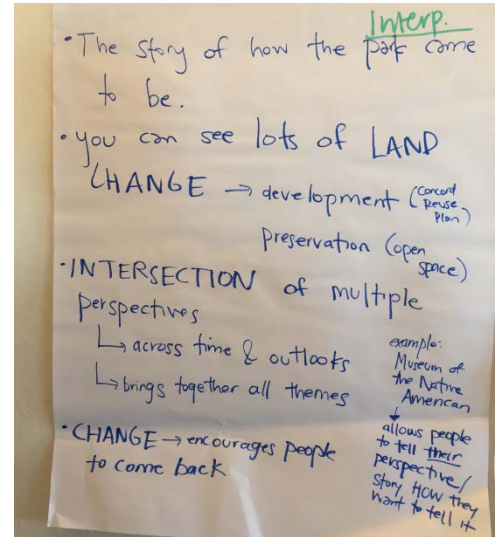 Interp.
• The story of how the park came
to be.
• you can see lots of LAND
CHANGE → development (Concord
Reuse
Plan)
preservation (open
space)
• INTERSECTION of multiple
perspectives
↳ across time & outlooks
↳ brings together all themes
example:
Museum of
the Native
American
↓
allows people
to tell their
perspective/
story, HOW they
want to tell it
• CHANGE → encourages people
to come back